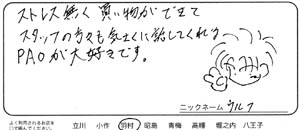 ストレス無く買い物ができて
スタッフの方々も気さくに話してくれる
PAOが大好きです。
ニックネーム ウルフ
よく利用されるお店を
○で囲んでください。
立川 小作 羽村 昭島 青梅 高幡 堀之内 八王子